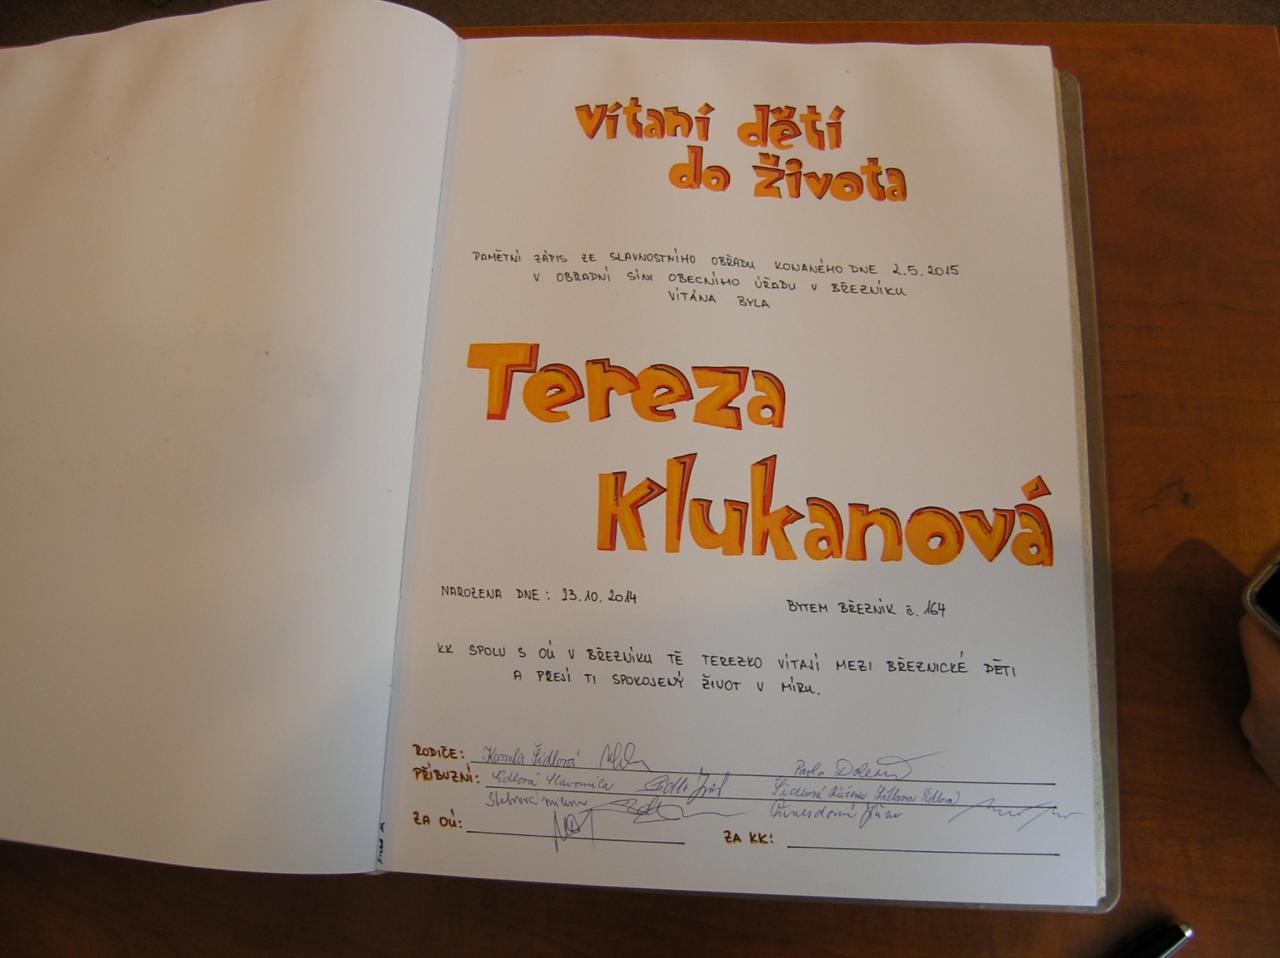 Vítaní dětí
do života
PAMĚTNÍ ZÁPIS ZE SLAVNOSTNÍHO OBŘADU KONANÉHO DNE 2.5.2015
V OBŘADNÍ SÍNI OBECNÍHO ÚŘADU V BŘEZNÍKU
VÍTÁNA BYLA
Tereza
Klukanová
NAROZENA DNE: 23.10.2014 BYTEM BŘEZNÍK č. 164
KK SPOLU S OÚ V BŘEZNÍKU TĚ TEREZKO VÍTAJÍ MEZI BŘEZNICKÉ DĚTI
A PŘEJÍ TI SPOKOJENÝ ŽIVOT V MÍRU.
RODIČE: Kamila Šídlová Pavla
PŘÍBUZNÍ: Šídlová Slavomila Šídlová
ZA OÚ: ZA KK: